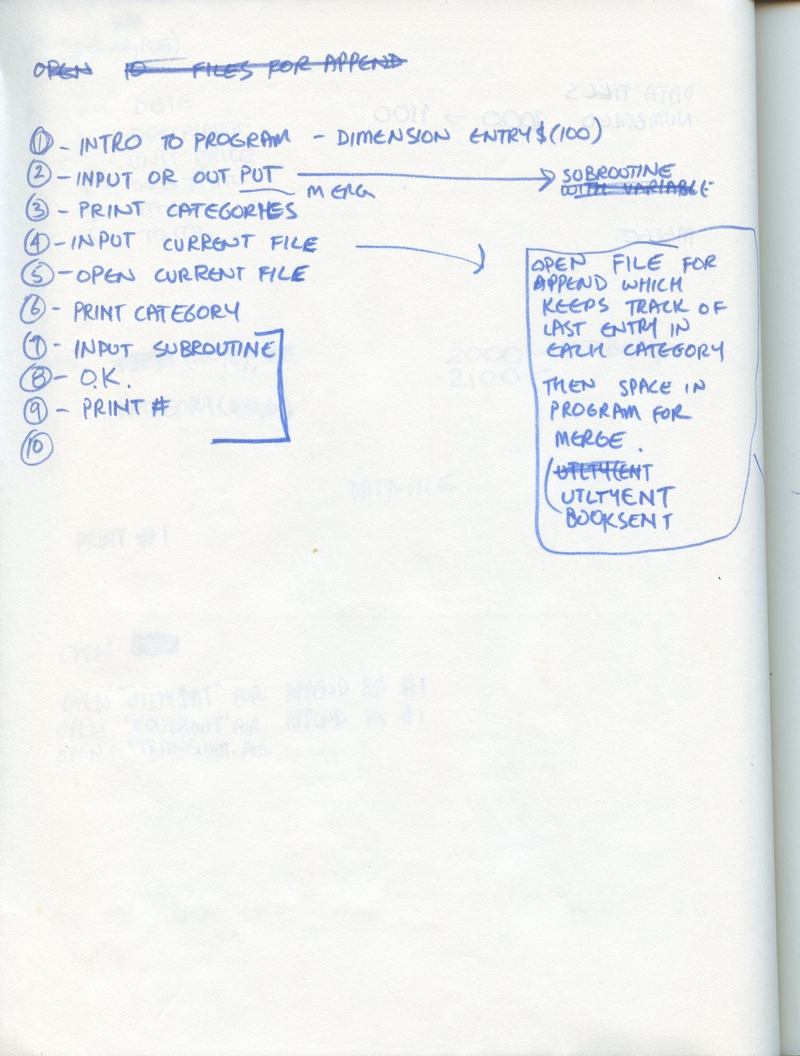 OPEN 10 FILES FOR APPEND
① - INTRO TO PROGRAM - DIMENSION ENTRY$(100)
② - INPUT OR OUT PUT
MERG
SUBROUTINE
WITH VARIABLE
③ - PRINT CATEGORIES
④ - INPUT CURRENT FILE
⑤ - OPEN CURRENT FILE
⑥ - PRINT CATEGORY
⑦ - INPUT SUBROUTINE
⑧ - O.K.
⑨ - PRINT #
⑩
OPEN FILE FOR
APPEND WHICH
KEEPS TRACK OF
LAST ENTRY IN
EACH CATEGORY
THEN SPACE IN
PROGRAM FOR
MERGE.
UTLTYENT
BOOKSENT